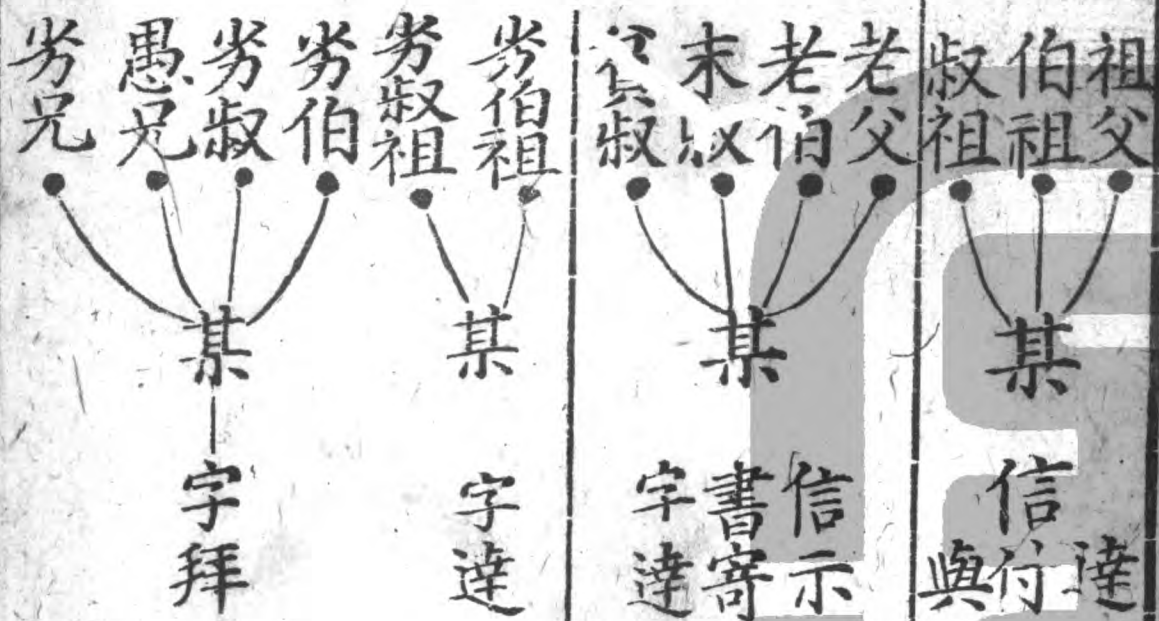 祖父
伯祖
叔祖
某
信
達
付
與
老父
老伯
末叔
叔
某
信示
書寄
字達
劣伯祖
劣叔祖
某
字達
劣伯
劣叔
愚兄
劣兄
某
字拜